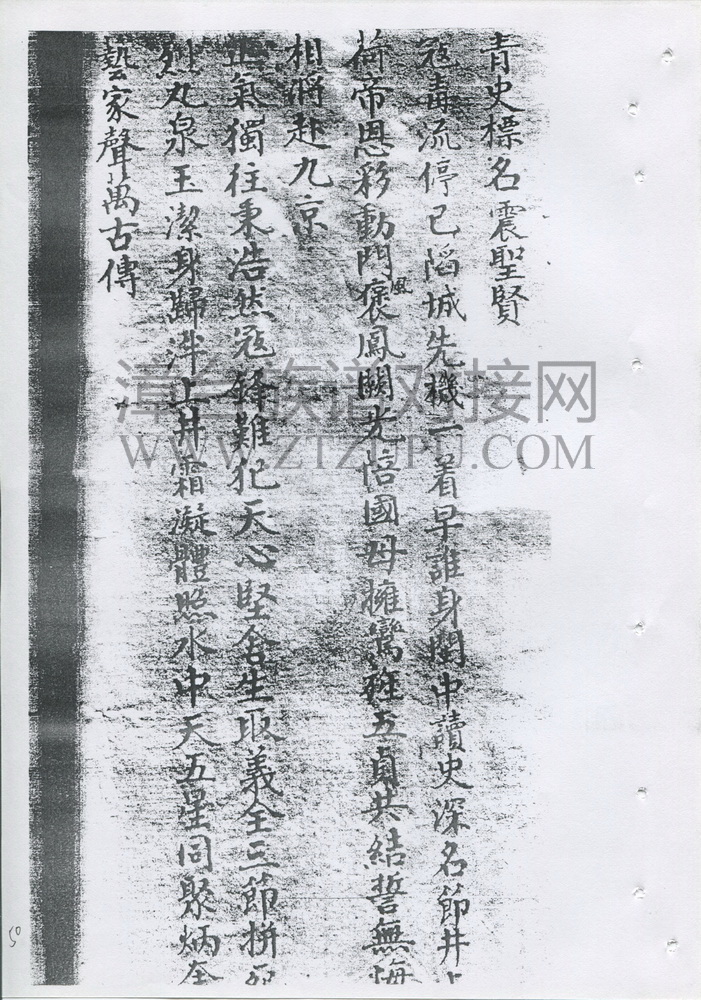 青史標名震聖賢
寇毒流停已陷城先機一着早誰身閨中讀史深名節井上
荷帝恩彩動門風褒鳳闕光倍國母擁鸞班五貞共結誓無悔
相將赴九京
正氣獨往秉浩然寇鋒難犯天心堅舍生取義全三節拼死
烈九泉玉潔身歸泮上井霜凝體照水中天五星同聚炳奎
藝家聲萬古傳
漳台族谱对接网
WWW.ZTZUPU.COM
50